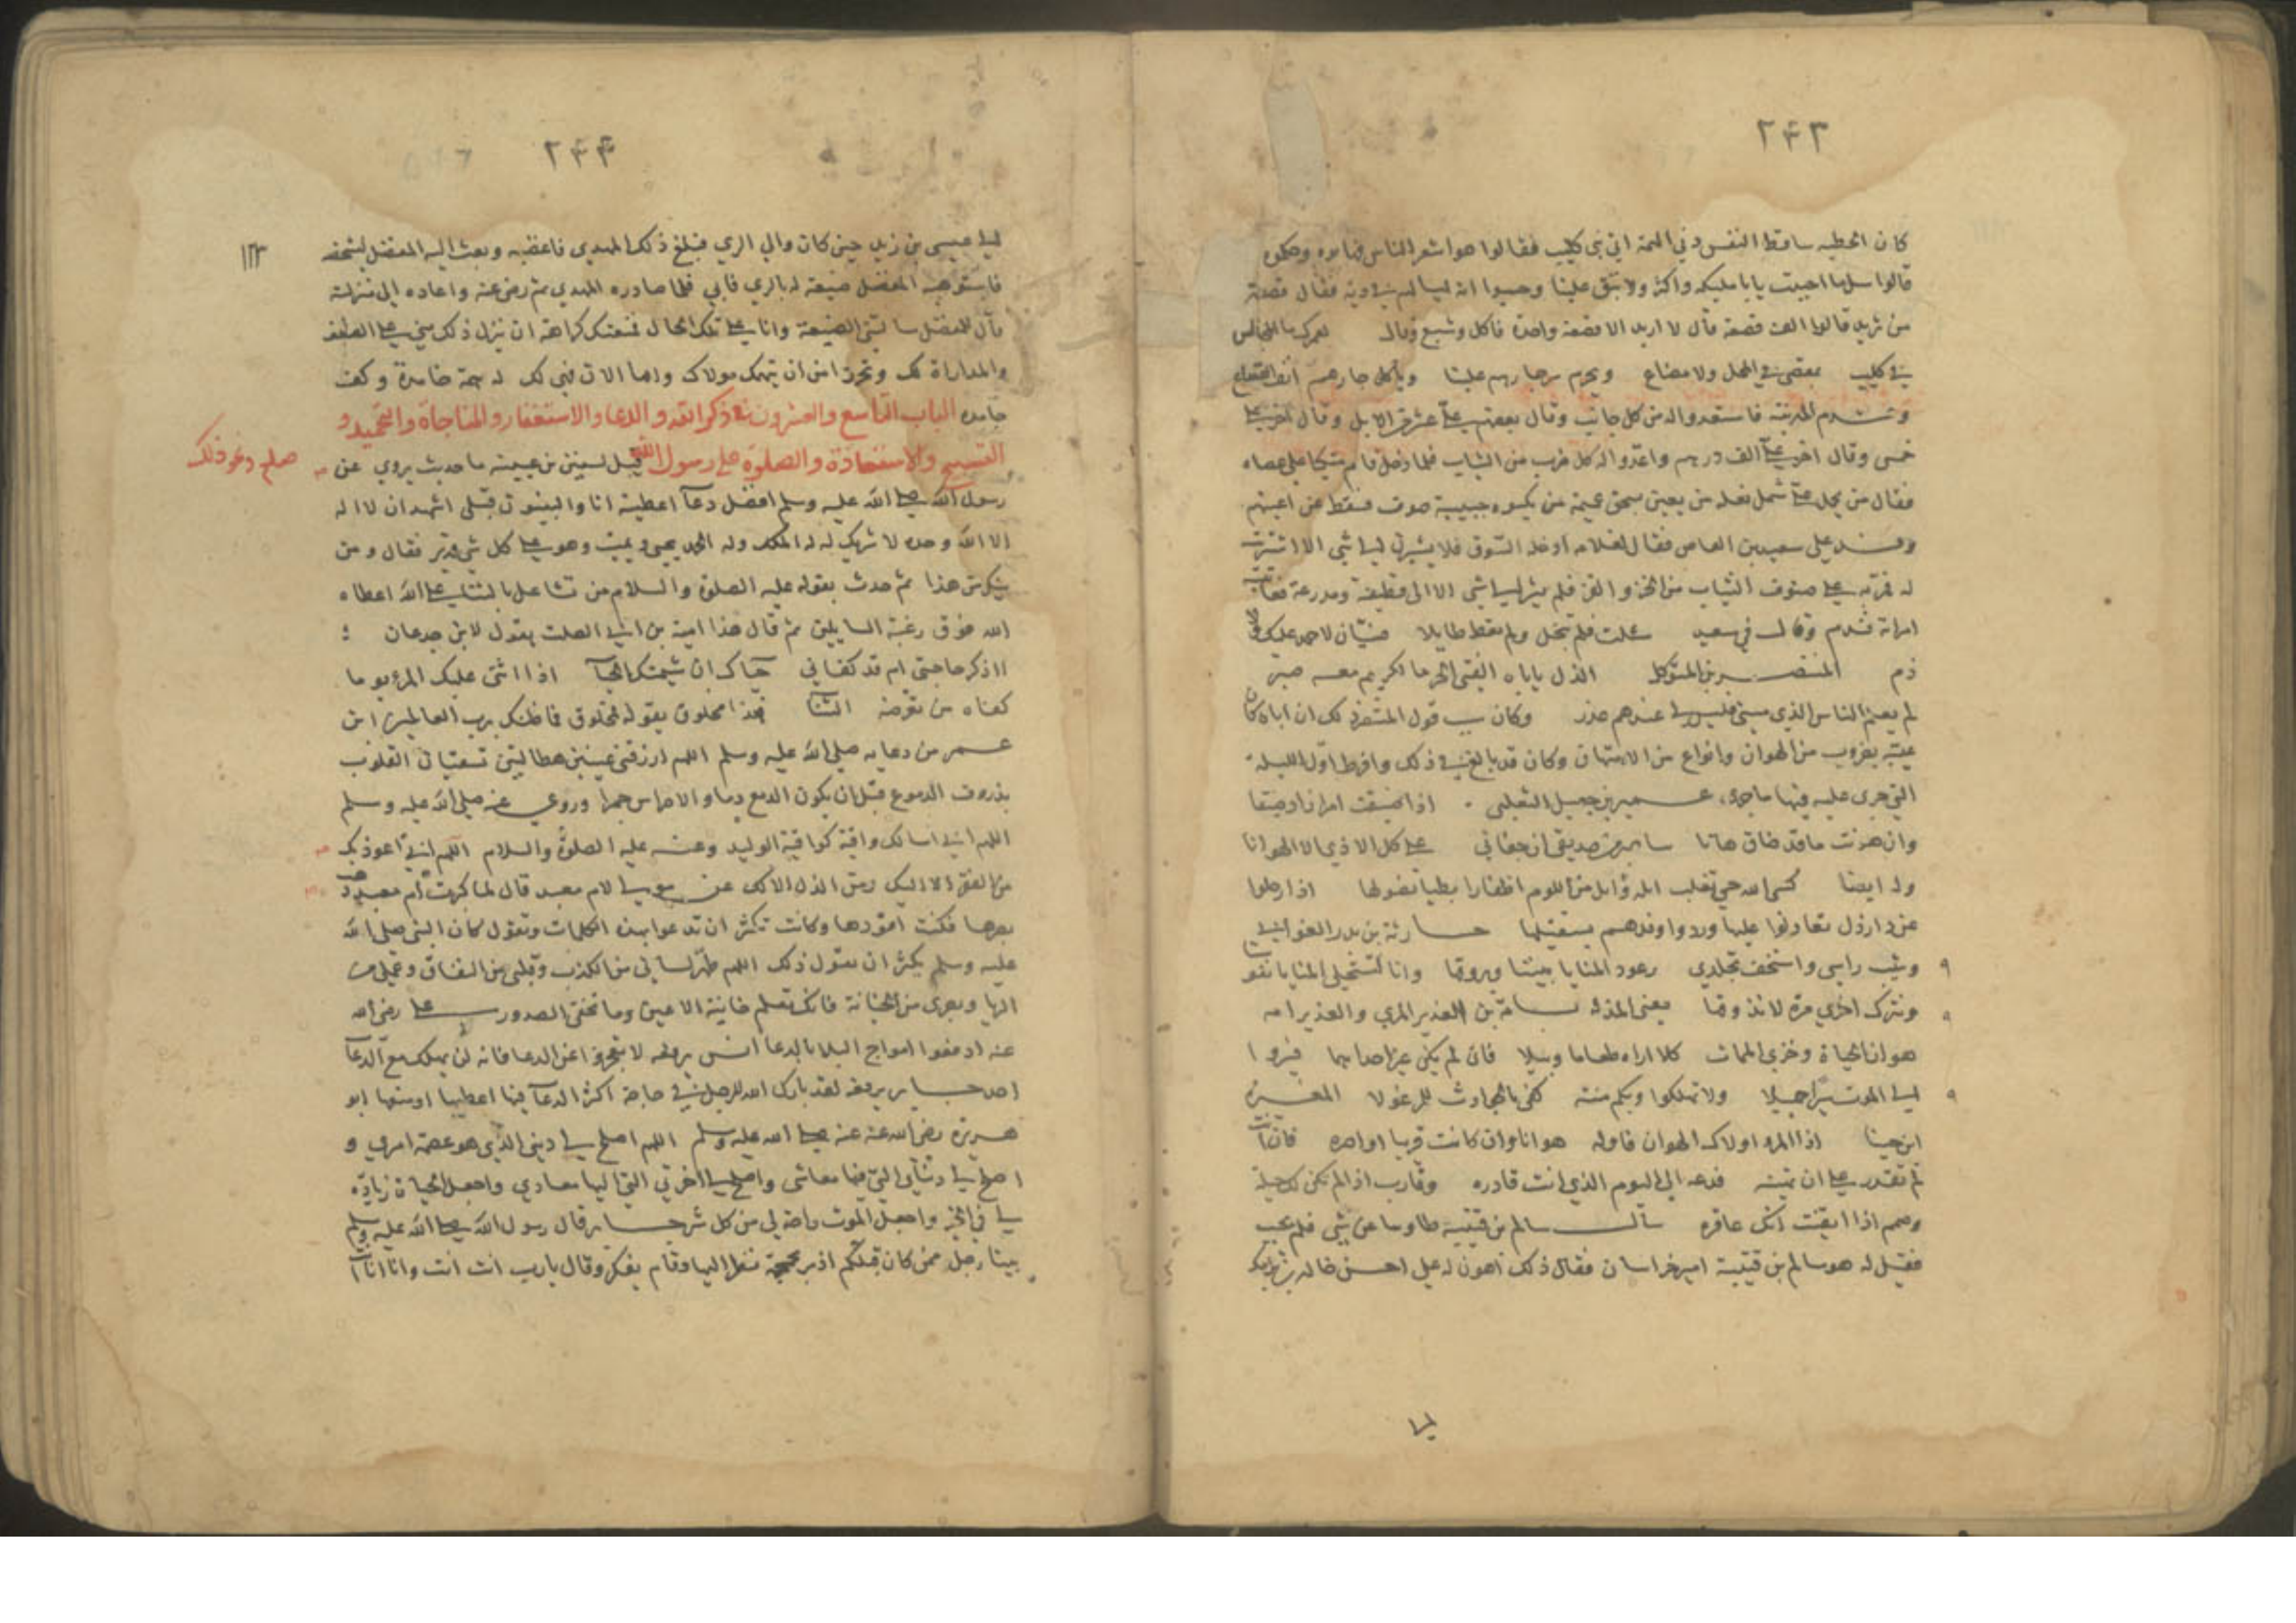 ٢٤٣
كان الحطيه ساقط النفس دني الهمة اتى بني كليب فقالوا هوا شعر الناس فهابوه
قالوا سل ما احببت يا با مليكه واكثر ولا تبق علينا وحسبوا انه ليسالهم في دية فقال قصعة
من ثريد قالوا الف قصعة قال لا اريد الا قصعة واحدة فاكل وشبع وقال لعمرك ما المجالس
في كليب بمقصى في المحل ولا مضاع ويحرم سر جارهم علينا وياكل جارهم انف القصاع
وقدم المدينة فاستعدوا له من كل جانب وقال بعضهم علي عشر من الابل وقال اخر علي
خمس وقال اخر علي الف درهم واعدوا له كل ضرب من الثياب فلما دخل قام متكيا على عصاه
فقال من يحمل على نعله من يعين من يكسوه جبيبة صوف فسقط عن اعينهم
وفد على سعيد بن العاص فقال لغلامه ادخله السوق فلا يشيرن الى شي الا اشتريت
له فمر به على صنوف الثياب من الخز والقز فلم يشر الى شي الا الى قطيفة ومدرعة فعاتبت
امراته فندم وقال في سعيد سئلت فلم تبخل ولم تعط طايلا فسيان لا حمد عليك
ذم المنتصر بن المتوكل الذل ياباه الفتى الحر ما لكريم معه صبر
لم يعلم الناس الذي مسني فليس لي عندهم عذر وكان سبب قول المنتصر ذلك ان اباه كان
عيبه بضروب من الهوان وانواع من الامتهان وكان قد بالغ في ذلك وافرط اول الليلة
التي جرى عليه فيها ما جرى عمير بن جميل التغلبي اذا ضيقت امرا زاد ضيقا
وان هونت ما قد ضاق هانا ساصبر من صديقي ان جفاني على كل الاذى الا الهوانا
وله ايضا كسى الله حي تغلب ابنة وائل من اللوم اظفارا بطيا نصولها اذا رحلوا
عن دار ذل تعاذلوا عليها وردوا وفدهم يستقيلها حارثة بن بدر الغداني
وشيب راسي واستخف تجلدي رعود المنايا بيننا وبروقها وانا لتستحلي المنايا نفوسنا
ونترك اخرى مرة لا نذوقها يعني المذلة بشامة بن الغدير المري والغدير امه
هوان الحياة وخزي الممات كلا اراه طعاما وبيلا فان لم يكن غير احداهما فسيروا
الى الموت سيرا جميلا ولا تهلكوا وبكم منة كفى بالحوادث للمرء غولا المغيرة
ابن حبنا اذا المرء اولاك الهوان فاوله هوانا وان كانت قريبا اواصره فان انت
لم تقدر على ان تهينه فدعه الى اليوم الذي انت قادره وقارب اذا لم تكن لك حيلة
وصمم اذا ايقنت انك عاقره سال سالم بن قتيبة طاوسا عن شي فلم يجب
فقيل له هو سالم بن قتيبة امير خراسان فقال ذلك اهون له علي
٢٤٤
١٢٣
عيسى بن زيد حين كان والي الري فبلغ ذلك المهدي فاغضبه وبعث اليه المفضل
فاستوهبه المفضل ضيعة له بالري فابى فلما صادره المهدي ثم رضي عنه واعاده الى منزلته
قال للمفضل سالتني الضيعة وانا على تلك الحال فمنعتك كراهة ان ينزل ذلك مني على الضعف
والمداراة لك وتحرزا من ان يتهمك مولاك واما الان فهي لك له همة خامدة وكف
جامده الباب التاسع والعشرون في ذكر الله والدعا والاستغفار والمناجاة والتحميد و
التسبيح والاستعاذة والصلوة على رسول الله صلعم ونحو ذلك قيل لسفين بن عيينة ما حديث يروى عن
رسول الله صلى الله عليه وسلم افضل دعا اعطيته انا والنبيون قبلي اشهد ان لا اله
الا الله وحده لا شريك له له الملك وله الحمد يحيي ويميت وهو على كل شي قدير فقال ومن
ينكر من هذا ثم حدث بقوله عليه الصلوة والسلام من تشاغل بالثناء على الله اعطاه
الله فوق رغبة السايلين ثم قال هذا امية بن ابي الصلت يقول لابن جدعان
ااذكر حاجتي ام قد كفاني حياك ان شيمتك الحيا اذا اثنى عليك المرء يوما
كفاه من تعرضه الثنا فهذا مخلوق يقوله لمخلوق فما ظنك برب العالمين ابن
عمر من دعايه صلى الله عليه وسلم اللهم ارزقني عينين هطالتين تسقيان القلوب
بذروف الدموع قبل ان يكون الدمع دما والاضراس جمرا وروي عنه صلى الله عليه وسلم
اللهم اني اسالك واقية كواقية الوليد وعنه عليه الصلوة والسلام اللهم اني اعوذ بك
من الفقر الا اليك ومن الذل الا لك عن مولى لام معبد قال لما كبرت ام معبد ذهب
بصرها فكنت اقودها وكانت تكثر ان تدعو بهذه الكلمات وتقول كان النبي صلى الله
عليه وسلم يكثر ان يقول ذلك اللهم طهر لساني من الكذب وقلبي من النفاق وعملي من
الريا وبصري من الخيانة فانك تعلم خاينة الاعين وما تخفي الصدور علي رضي الله
عنه ادفعوا امواج البلا بالدعا انس يرفعه لا تعجزوا عن الدعا فانه لن يهلك مع الدعا
احد جابر يرفعه لقد بارك الله للرجل في حاجة اكثر الدعا فيها اعطيها او منعها ابو
هريرة رضي الله عنه عنه صلى الله عليه وسلم اللهم اصلح لي ديني الذي هو عصمة امري و
اصلح لي دنياي التي فيها معاشي واصلح لي اخرتي التي اليها معادي واجعل الحياة زيادة
لي في الخير واجعل الموت راحة لي من كل شر جابر قال رسول الله صلى الله عليه وسلم
بينا رجل ممن كان قبلكم اذ مر بجمجمة فنظر اليها وقام يفكر وقال يا رب انت انت وانا انا